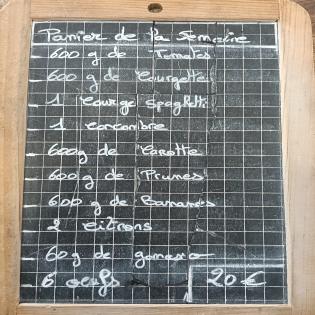 Panier de la Semaine
- 600 g de Tomates
- 600 g de Courgette
- 1 Courge Spaghetti
- 1 Concombre
- 600g de Carotte
- 600 g de Prunes
- 600 g de Bananes
- 2 citrons
- 60 g de
- 6 oeufs 20 €